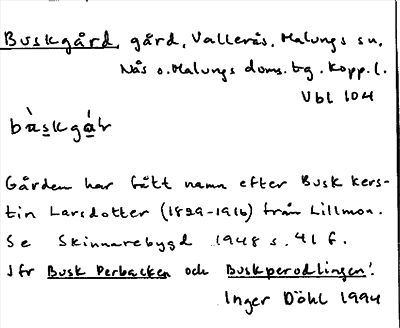 Buskgård, gård, Vallerås, Malungs sn,
Nås o. Malungs doms. tg. Kopp. l.
Vbl 104
bùskgá̱r
Gården har fått namn efter Busk Kers-
tin Larsdotter (1829-1916) från Lillmon.
Se Skinnarebygd 1948 s. 41 f.
Jfr Busk Perbacken och Buskperodlingen!
Inger Döhl 1994